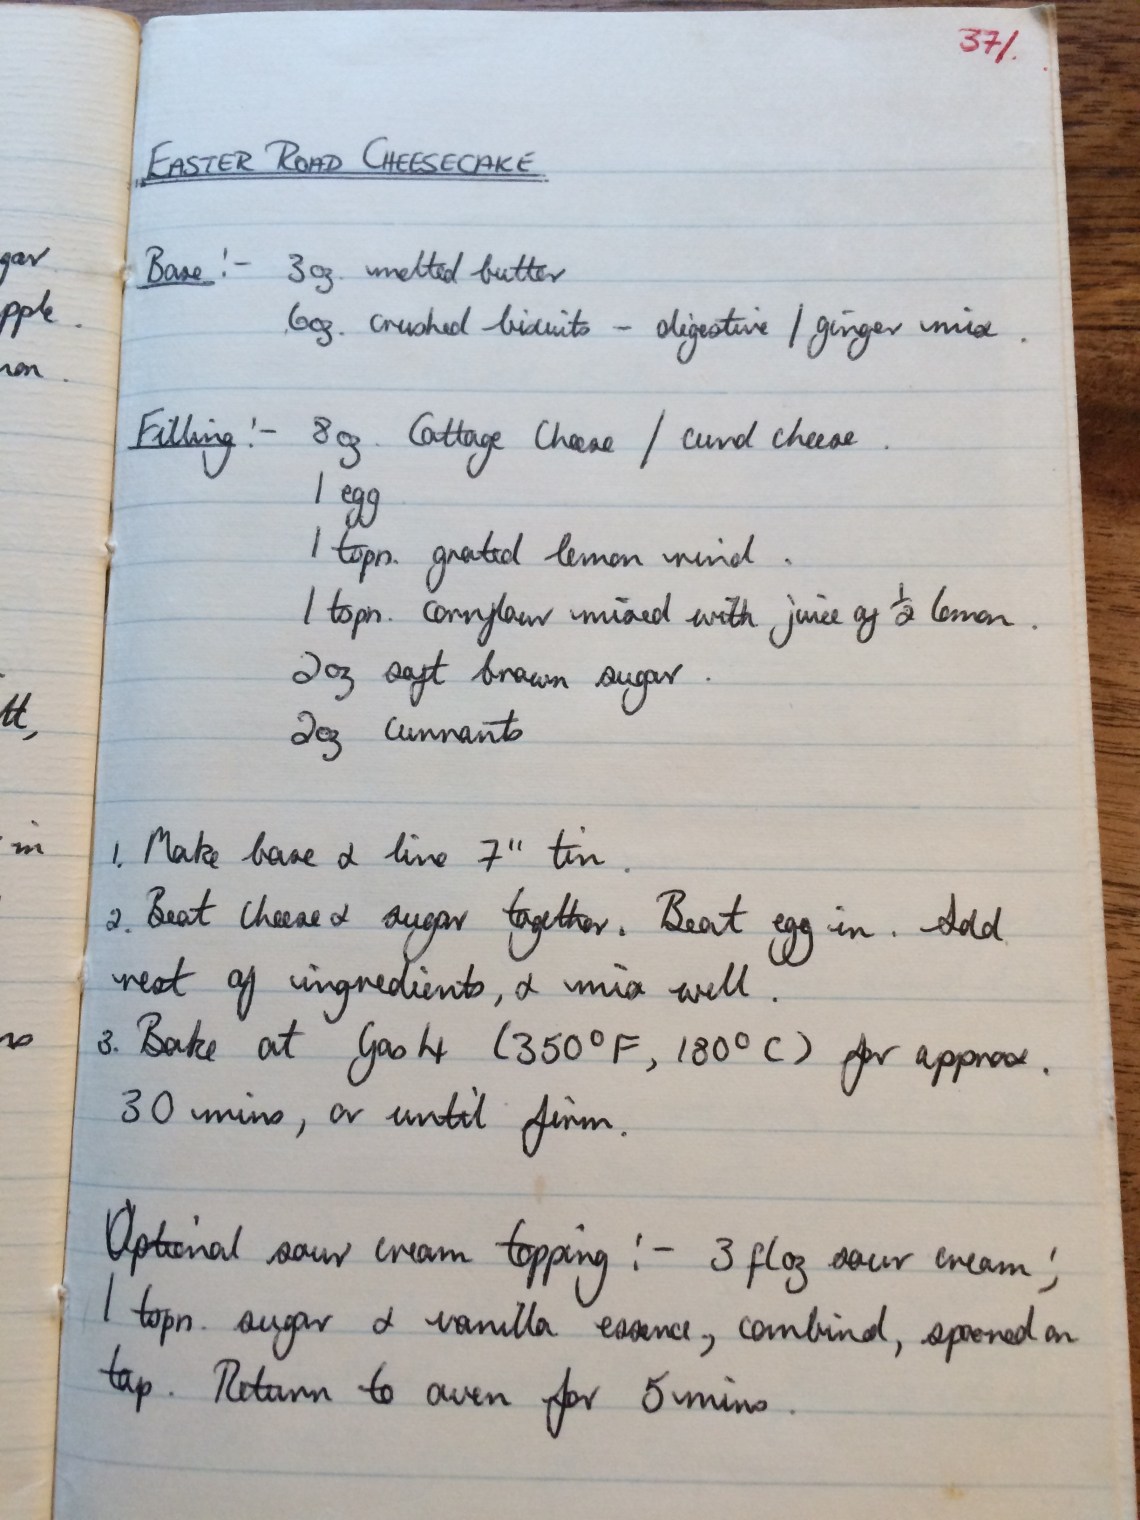 37/.
EASTER ROAD CHEESECAKE
Base :- 3oz. melted butter
6oz. crushed biscuits - digestive / ginger mix .
Filling :- 8oz. Cottage Cheese / curd cheese .
1 egg
1 tspn. grated lemon rind .
1 tspn. cornflour mixed with juice of ½ lemon .
2oz soft brown sugar .
2oz currants
1. Make base & line 7" tin .
2. Beat cheese & sugar together. Beat egg in . Add
rest of ingredients, & mix well .
3. Bake at Gas 4 (350°F, 180°C) for approx .
30 mins, or until firm .
Optional sour cream topping :- 3 floz sour cream ;
1 tspn. sugar & vanilla essence, combined, spread on
top . Return to oven for 5 mins .
gar
pple .
tt,
in